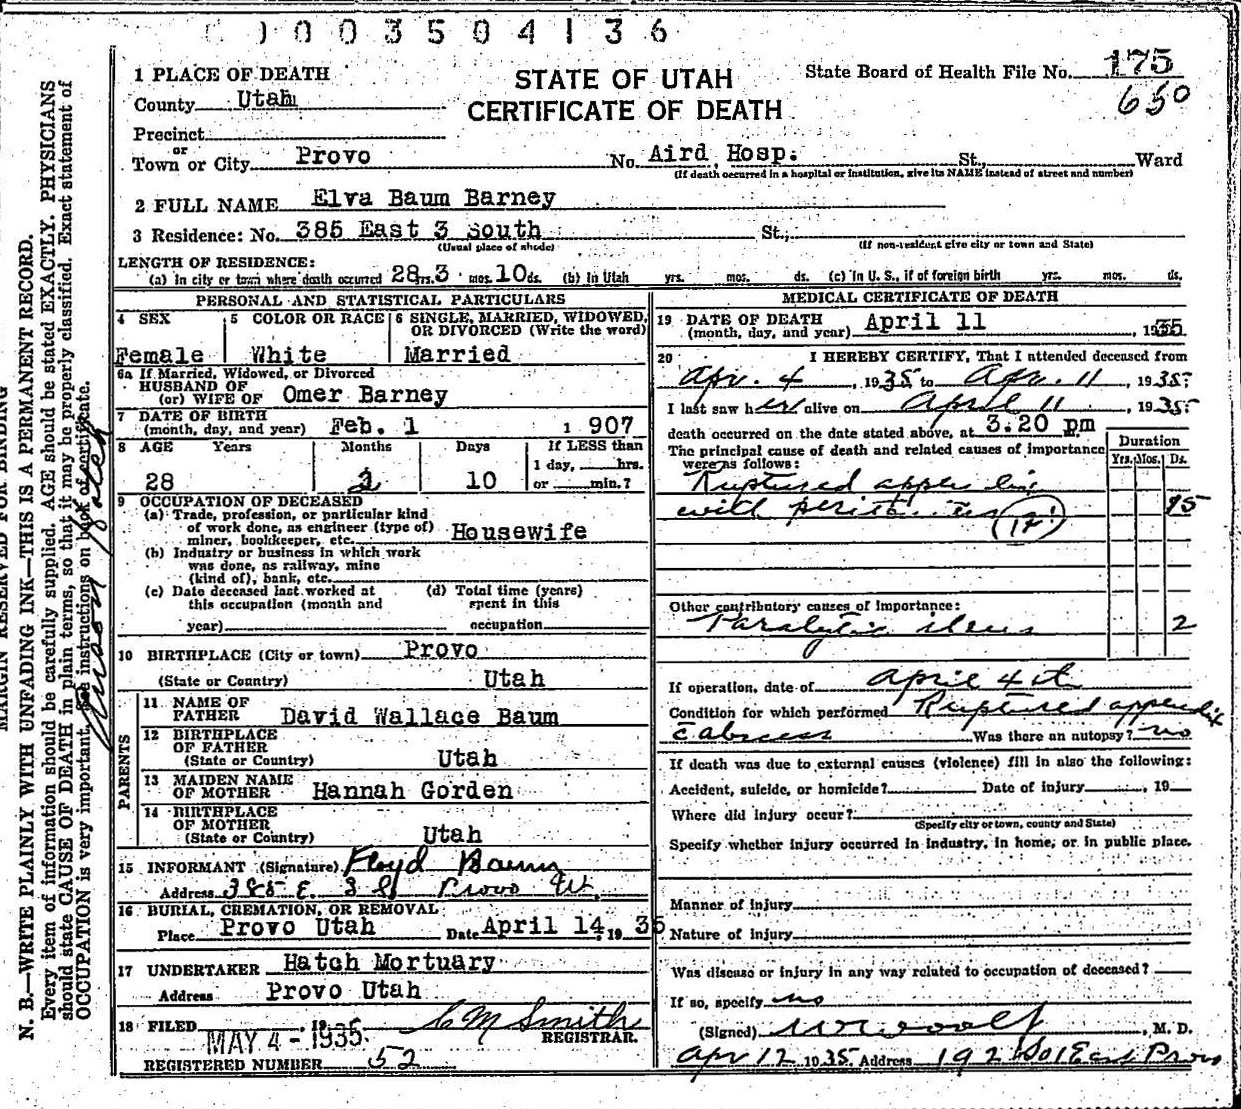 ( ) 0 0 3 5 0 4 1 3 6
1 PLACE OF DEATH
County Utah
Precinct
or
Town or City Provo
STATE OF UTAH
CERTIFICATE OF DEATH
State Board of Health File No. 175
650
No. Aird Hosp. St., Ward
(If death occurred in a hospital or institution, give its NAME instead of street and number)
2 FULL NAME Elva Baum Barney
3 Residence: No. 385 East 3 South St.,
(Usual place of abode) (If non-resident give city or town and State)
LENGTH OF RESIDENCE:
(a) In city or town where death occurred 28 yrs. 3 mos. 10 ds. (b) In Utah yrs. mos. ds. (c) In U. S., if of foreign birth yrs. mos. ds.
PERSONAL AND STATISTICAL PARTICULARS
4 SEX 5 COLOR OR RACE 6 SINGLE, MARRIED, WIDOWED, OR DIVORCED (Write the word)
Female White Married
6a If Married, Widowed, or Divorced
HUSBAND OF
(or) WIFE OF Omer Barney
7 DATE OF BIRTH
(month, day, and year) Feb. 1 1 907
8 AGE Years Months Days If LESS than
1 day, hrs.
28 10 or min.?
9 OCCUPATION OF DECEASED
(a) Trade, profession, or particular kind
of work done, as engineer (type of)
miner, bookkeeper, etc. Housewife
(b) Industry or business in which work
was done, as railway, mine
(kind of), bank, etc.
(c) Date deceased last worked at
this occupation (month and
year)
(d) Total time (years)
spent in this
occupation
10 BIRTHPLACE (City or town) Provo
(State or Country) Utah
PARENTS
11 NAME OF
FATHER David Wallace Baum
12 BIRTHPLACE
OF FATHER
(State or Country) Utah
13 MAIDEN NAME
OF MOTHER Hannah Gorden
14 BIRTHPLACE
OF MOTHER
(State or Country) Utah
15 INFORMANT (Signature) Floyd Baum
Address 385 E. 3 S Provo Ut.
16 BURIAL, CREMATION, OR REMOVAL
Place Provo Utah Date April 14, 19 35
17 UNDERTAKER Hatch Mortuary
Address Provo Utah
18 FILED , 19
MAY 4 - 1935 C M Smith
REGISTRAR.
REGISTERED NUMBER 52
MEDICAL CERTIFICATE OF DEATH
19 DATE OF DEATH
(month, day, and year) April 11 , 1935
20 I HEREBY CERTIFY, That I attended deceased from
Apr. 4 , 1935 to Apr. 11 , 1935
I last saw her alive on April 11 , 1935
death occurred on the date stated above, at 3.20 pm
The principal cause of death and related causes of importance
were as follows:
Duration
Yrs. Mos. Ds.
Ruptured appendix
with peritonitis 15
Other contributory causes of importance:
Paralytic ileus 2
If operation, date of April 4th
Condition for which performed Ruptured appendix
c abscess Was there an autopsy? no
If death was due to external causes (violence) fill in also the following:
Accident, suicide, or homicide? Date of injury , 19
Where did injury occur?
(Specify city or town, county and State)
Specify whether injury occurred in industry, in home, or in public place.
Manner of injury
Nature of injury
Was disease or injury in any way related to occupation of deceased?
If so, specify no
(Signed) Woolf , M. D.
Apr 12 1935 Address 192 So 1 East Provo
MARGIN RESERVED FOR BINDING
N. B.—WRITE PLAINLY WITH UNFADING INK—THIS IS A PERMANENT RECORD.
Every item of information should be carefully supplied. AGE should be stated EXACTLY. PHYSICIANS
should state CAUSE OF DEATH in plain terms, so that it may be properly classified. Exact statement of
OCCUPATION is very important. See instructions on back of certificate.